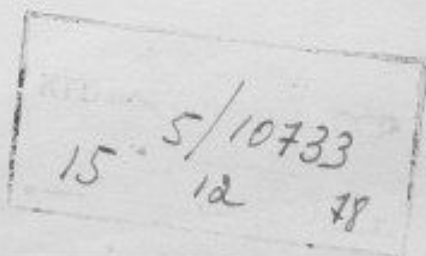 5/10733
15 12 78